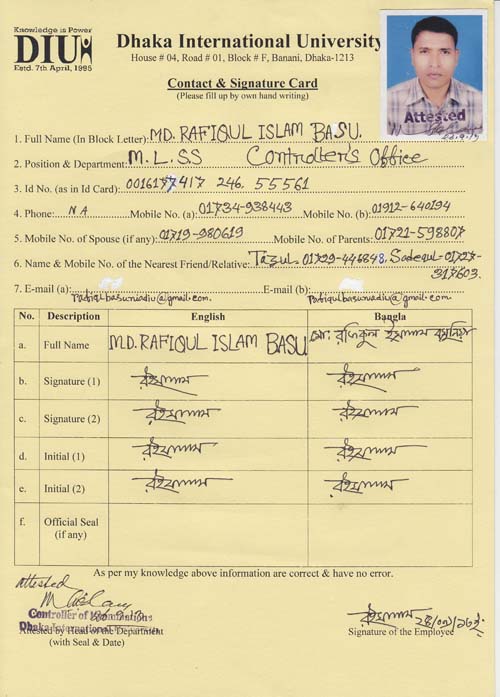 Knowledge is Power
DIU
Estd. 7th April, 1995
Dhaka International University
House # 04, Road # 01, Block # F, Banani, Dhaka-1213
Contact & Signature Card
(Please fill up by own hand writing)
Attested
1. Full Name (In Block Letter): MD. RAFIQUL ISLAM BASU.
2. Position & Department: M.L.SS Controller's Office
3. Id No. (as in Id Card): 246 55561
4. Phone: NA Mobile No. (a): 01734-938443 Mobile No. (b): 01912-640194
5. Mobile No. of Spouse (if any): 01719-980619 Mobile No. of Parents: 01721-598807
6. Name & Mobile No. of the Nearest Friend/Relative: Tazul- 01729-446848, Sadequl-01727-
317603.
7. E-mail (a): E-mail (b):
No. Description English Bangla
a. Full Name MD. RAFIQUL ISLAM BASU মো: রফিকুল ইসলাম
b. Signature (1)
c. Signature (2)
d. Initial (1)
e. Initial (2)
f. Official Seal
(if any)
As per my knowledge above information are correct & have no error.
Attested
Controller of Examinations
Dhaka International
Attested by Head of the Department
(with Seal & Date)
Signature of the Employee